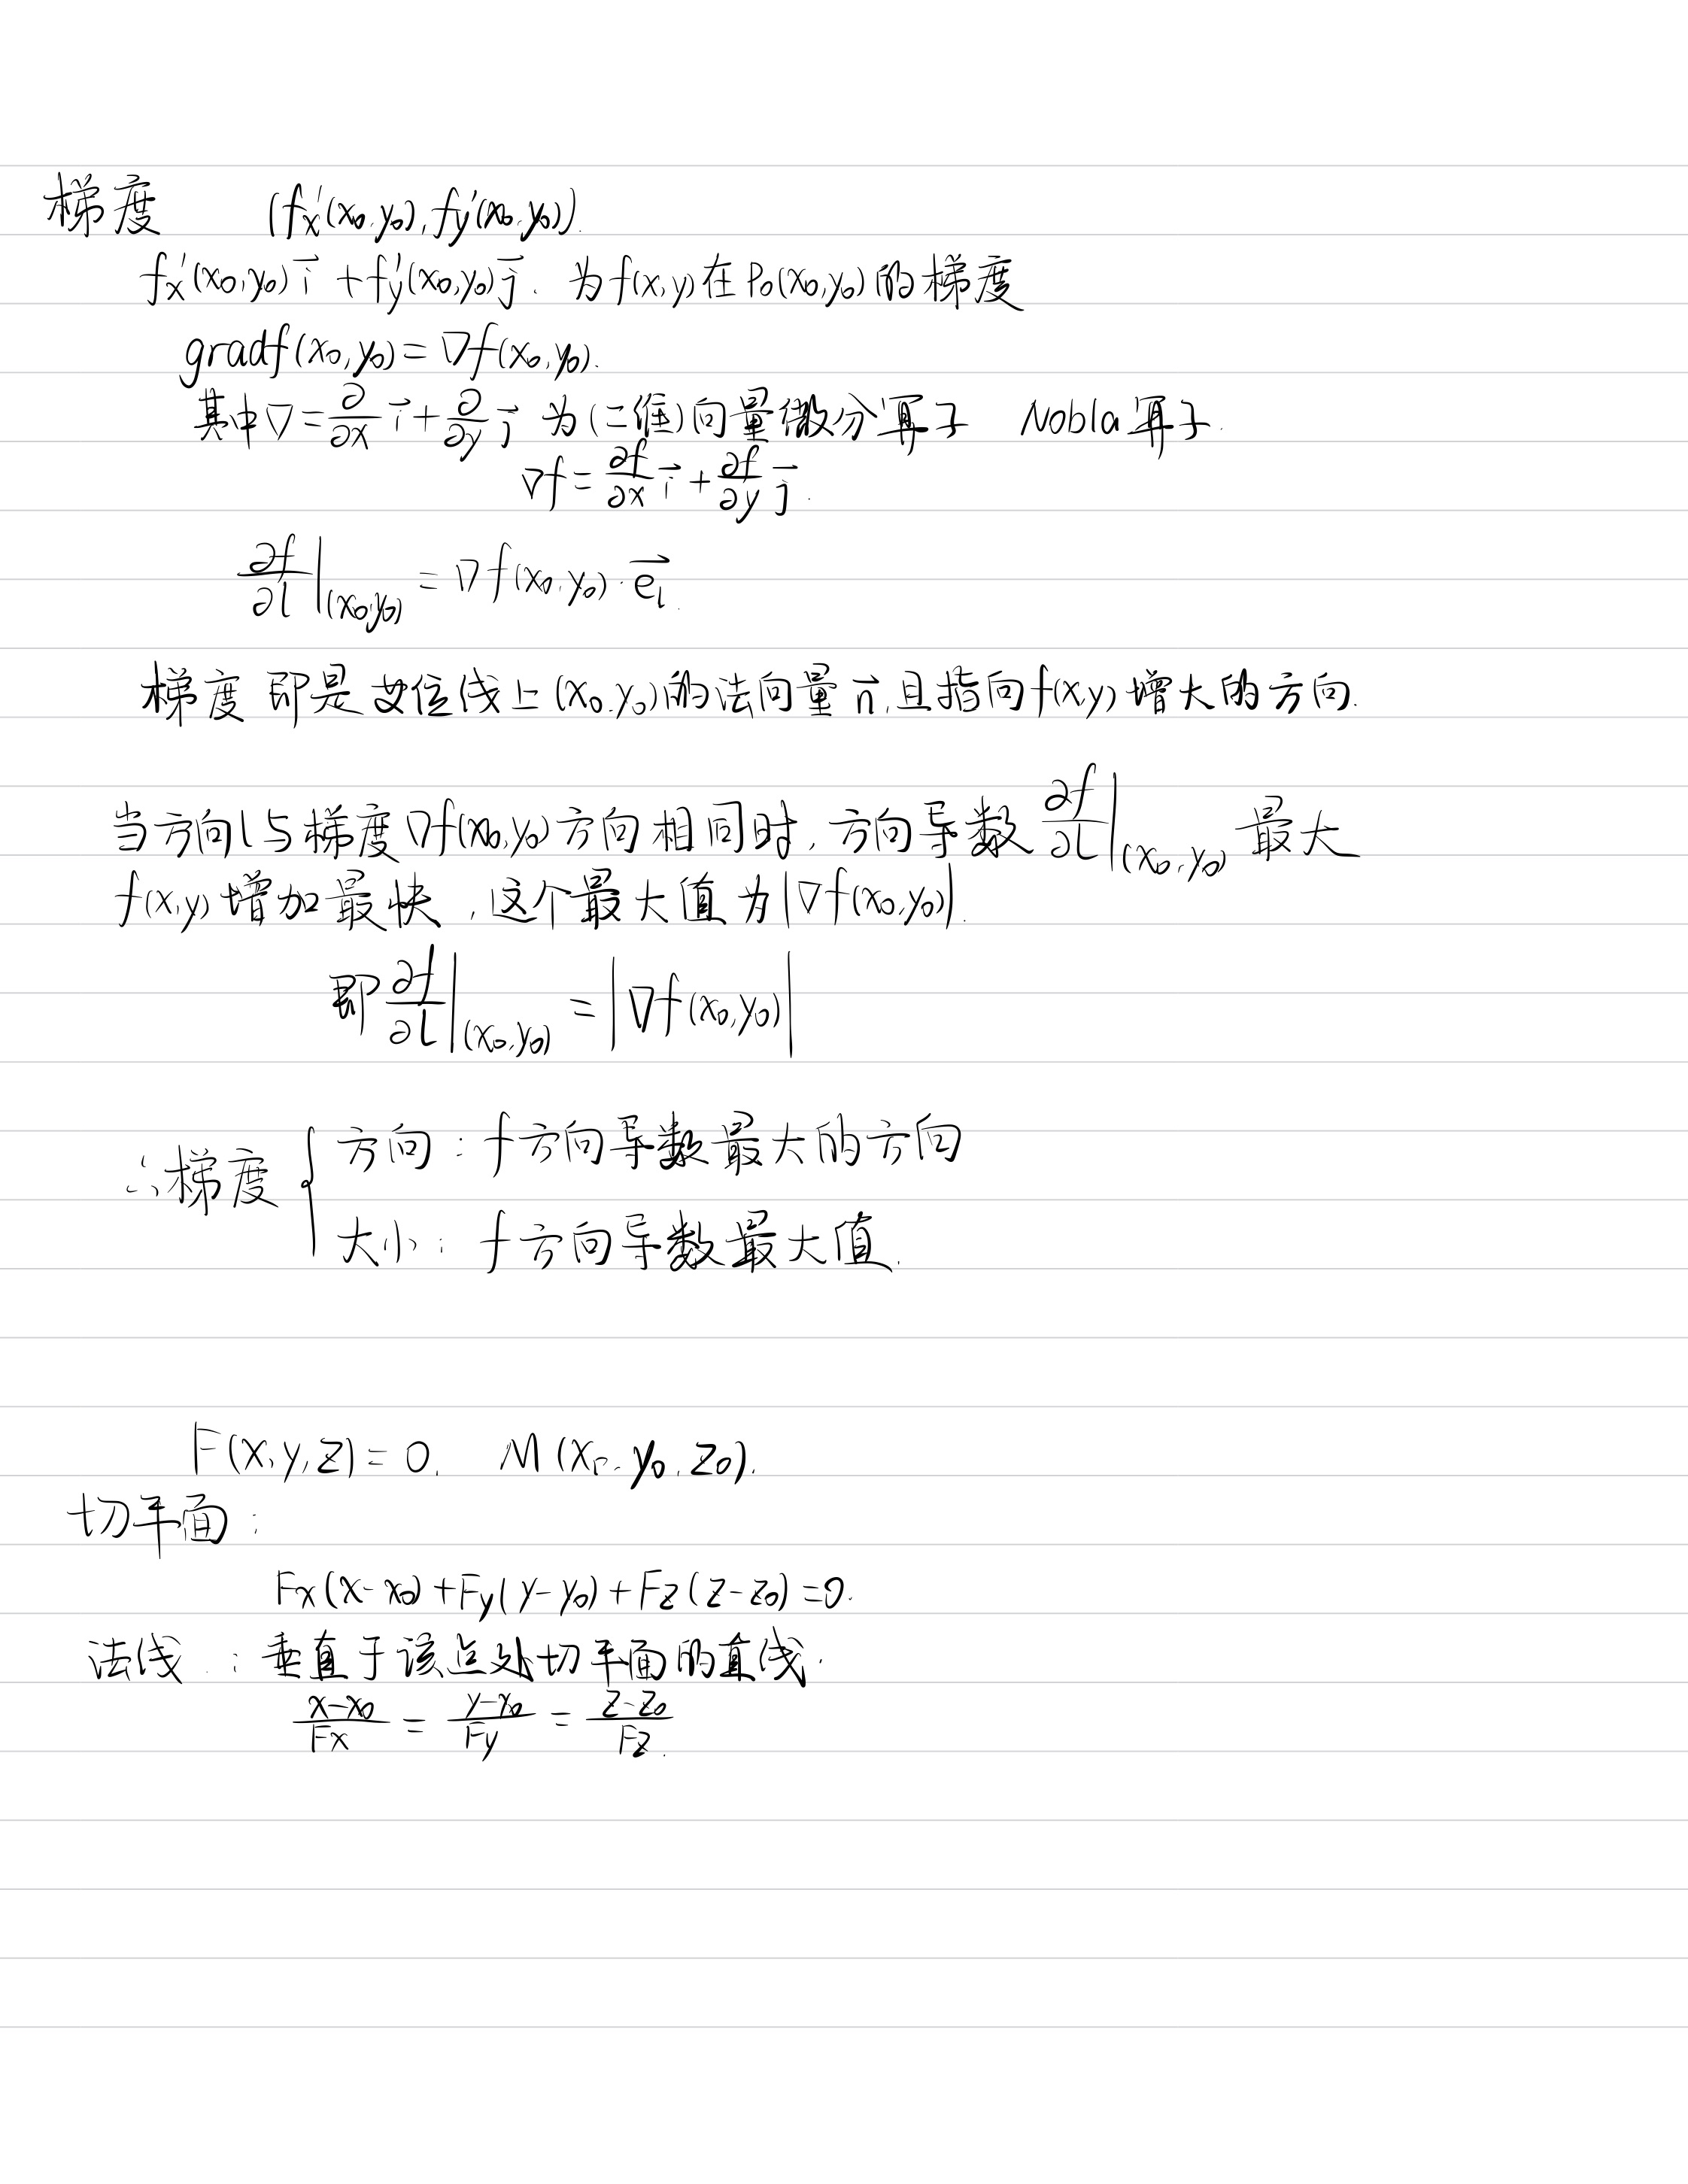 梯度 (fx'(x₀,y₀), fy'(x₀,y₀)).
fx'(x₀,y₀)i⃗ + fy'(x₀,y₀)j⃗. 为f(x,y)在P₀(x₀,y₀)的梯度
gradf(x₀,y₀) = ∇f(x₀,y₀).
其中∇ = ∂/∂x i⃗ + ∂/∂y j⃗ 为(二维)向量微分算子 Nobla算子.
∇f = ∂f/∂x i⃗ + ∂f/∂y j⃗.
∂f/∂l|(x₀,y₀) = ∇f(x₀,y₀)·e⃗ₗ.
梯度 即是 位线上(x₀,y₀)的法向量n⃗,且指向f(x,y)增大的方向.
当方向l与梯度∇f(x₀,y₀)方向相同时,方向导数∂f/∂l|(x₀,y₀)最大
f(x,y)增加最快,这个最大值为|∇f(x₀,y₀)|.
即∂f/∂l|(x₀,y₀) = |∇f(x₀,y₀)|
∴梯度 {
方向:f方向导数最大的方向
大小:f方向导数最大值.
F(x,y,z) = 0. M(x₀,y₀,z₀).
切平面:
Fx(x-x₀)+Fy(y-y₀)+Fz(z-z₀)=0.
法线:垂直于该点处切平面的直线.
(x-x₀)/Fx = (y-y₀)/Fy = (z-z₀)/Fz.